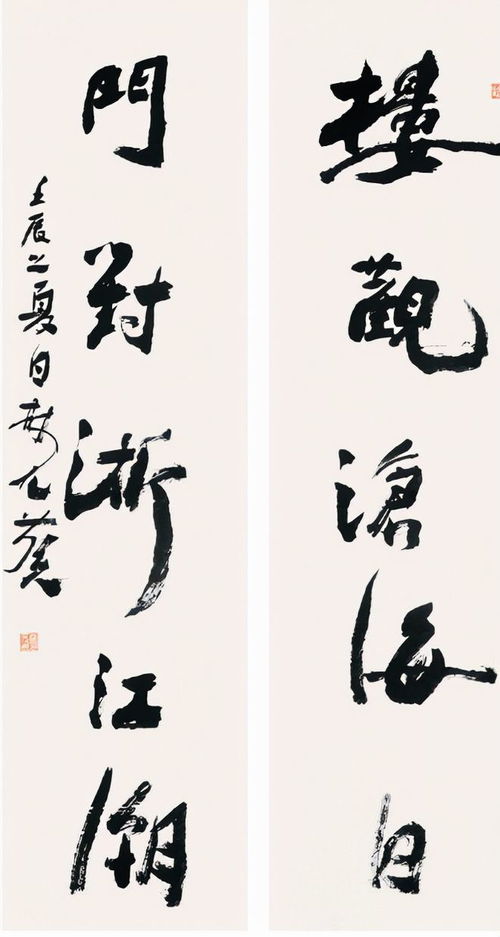 樓觀滄海日
門對浙江潮
壬辰之夏日